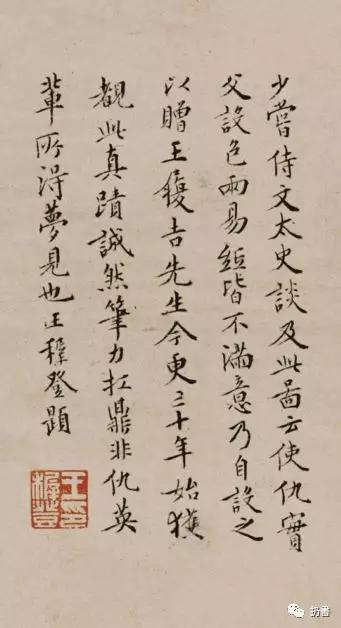 少嘗侍文太史談及此啚云使仇實
父設色兩易絹皆不滿意乃自設之
以贈王履吉先生今更三十年始獲
觀此真蹟誠然筆力扛鼎非仇英
輩所淂夢見也王穉登題
王穉登印
扔書